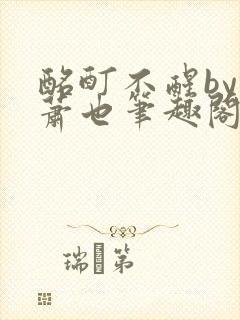 酩酊不醒by
萧也筆趣閣
瑞第